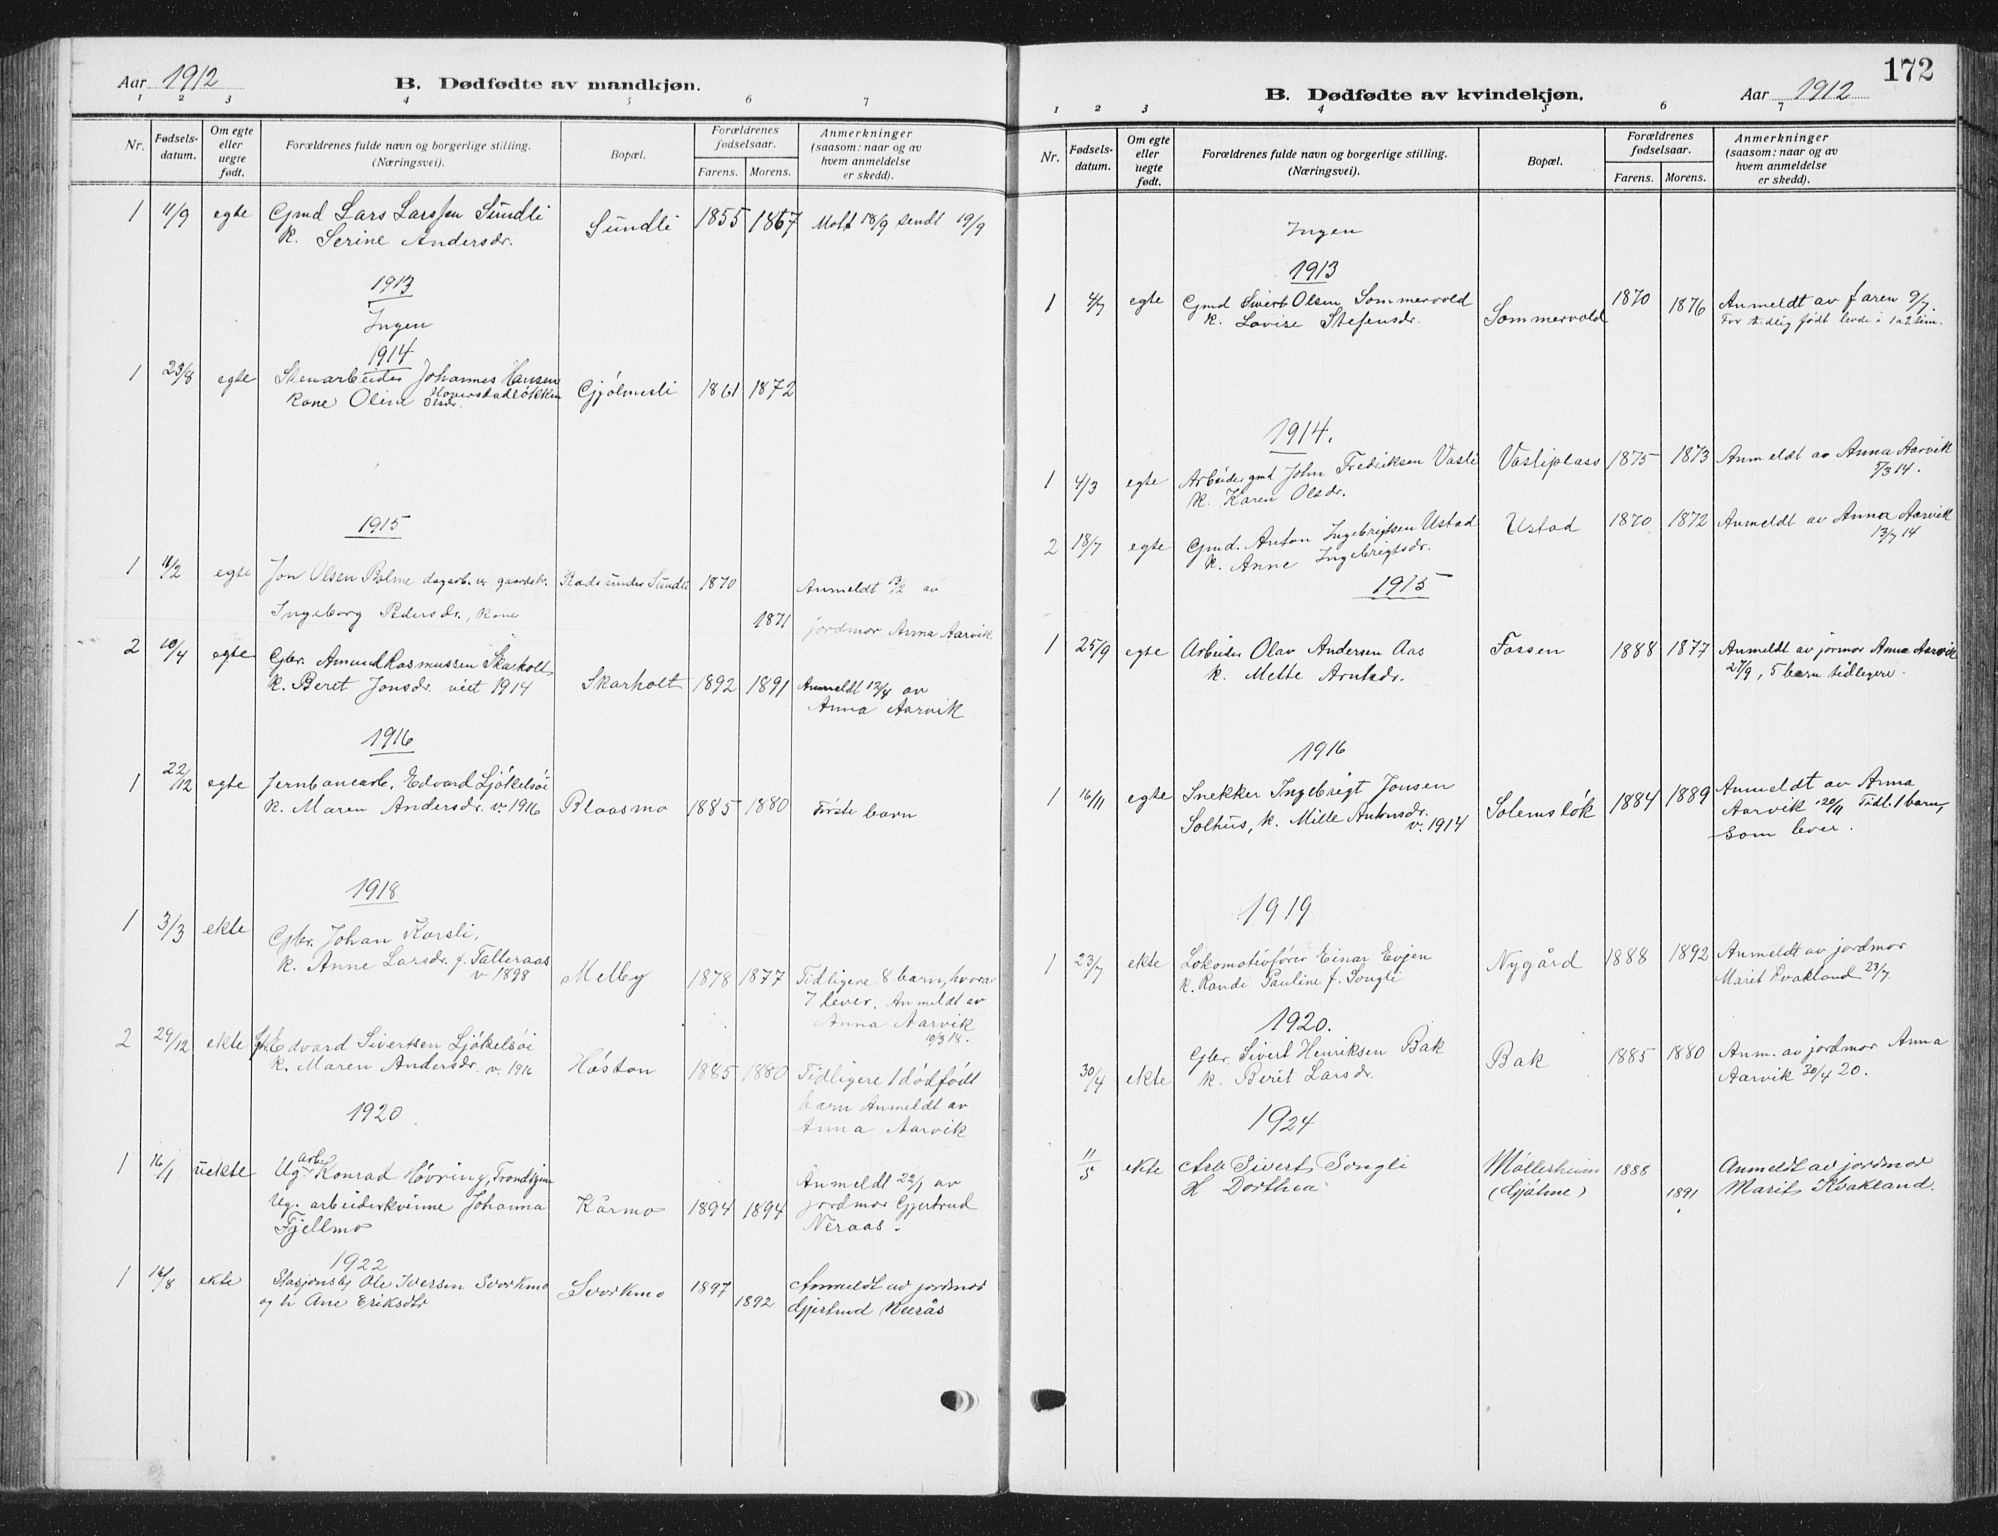 Aar 1912
B. Dødfødte av mandkjøn.
1 2 3 4 5 6 7
Nr.
Fødsels-datum.
Om egte eller uegte født.
Forældrenes fulde navn og borgerlige stilling.
(Næringsvei).
Bopæl.
Forældrenes fødselsaar.
Farens. Morens.
Anmerkninger
(saasom: naar og av
hvem anmeldelse
er skedd).
1 11/9 egte Gmd Lars Larssen Sundli Sundli 1855 1867 Mott 18/9 sendt 19/9
k. Serine Andersdr.
1913
Ingen
1914
1 23/8 egte Stenarbeider Johannes Hansen Gjølmesli 1861 1872
Kone Oline Olsdr.
1915
1 11/2 egte Jon Olsen Bolme dagarb. Plads under Sundli 1870 Anmeldt av
Ingeborg Pedersdr., kone 1871 jordmor Anna Aarvik
2 10/4 egte Gbr. Amund Rasmussen Skarholt
k. Beret Jonsdr. viet 1914 Skarholt 1892 1891 Anmeldt 12/4 av
Anna Aarvik
1916
1 22/12 egte Jernbanearb. Edvard Ljökelsöi
k. Maren Andersdr. v. 1916 Blaasmo 1885 1880 Første barn
1918
1 3/3 ekte Gbr. Johan Korsli,
k. Anne Larsdr. f. Talleraas
v 1898 Melby 1878 1877 Tidligere 8 barn, hvorav
7 lever. Anmeldt av
Anna Aarvik
10/3 18.
2 29/12 ekte Edvard Sivertsen Ljökelsöi
k. Maren Andersdr. v. 1916 Höston 1885 1880 Tidligere 1 dödfödt
barn Anmeldt av
Anna Aarvik
1920
1 16/1 uekte Ug. arb. Konrad Hövring, Trondhjem
Ug. arbeiderkvinne Johanna Kårmo 1894 1894 Anmeldt 22/1 av
Fjellmo jordmor Gjertrud
Neraas.
1922
1 16/8 ekte Stasjonsbj Ole Iversen Svorkmo Svorkmo 1897 Anmeldt av jordmor
og h Ane Eriksdtr 1892 Gjertrud Neerås
172
B. Dødfødte av kvindekjøn.
Aar 1912
1 2 3 4 5 6 7
Nr.
Fødsels-datum.
Om egte eller uegte født.
Forældrenes fulde navn og borgerlige stilling.
(Næringsvei).
Bopæl.
Forældrenes fødselsaar.
Farens. Morens.
Anmerkninger
(saasom: naar og av
hvem anmeldelse
er skedd).
Ingen
1913
1 4/7 egte Gmd Sivert Olsen Sommervold Sommervold 1870 1876 Anmeldt av faren 9/7.
k. Lovise Stefensdr. For tidlig født levde i 1 a 2 tim.
1914.
1 4/3 egte Arbeider gmd John Fredriksen Vasli Vasliplass 1875 1873 Anmeldt av Anna Aarvik
k. Karen Olsdr. 5/3 14.
2 18/7 egte Gmd. Anton Ingebrigtsen Ustad Ustad 1870 1872 Anmeldt av Anna Aarvik
k. Anne Ingebrigtsdr. 13/7 14
1915
1 25/9 egte Arbeider Olav Andersen Aas Fossen 1888 1877 Anmeldt av jormor Anna Aarvik
k. Mette Arntsdr. 27/9, 5 barn tidligere.
1916
1 16/11 egte Snekker Ingebrigt Jonsen Solemsløk 1884 1889 Anmeldt av Anna
Solhus, k. Mille Antonsdr. Aarvik 20/11 Tidl. 1 barn,
v. 1914 som lever.
1919
1 23/7 ekte Lokomotivfører Einar Evjen Nygård 1888 1892 Anmeldt av jordmor
k. Randi Pauline f. Songli Marit Kvakland 23/7
1920.
30/4 ekte Gbr. Sivert Henriksen Bak Bak 1885 1880 Anm. av jordmor Anna
k. Beret Larsdr. Aarvik 30/4 20.
1924
11/5 ekte Arb Sivert Songli Möllerheim 1888 Anmeldt av jordmor
H Dorthea (Gjölme) 1891 Marit Kvakland.